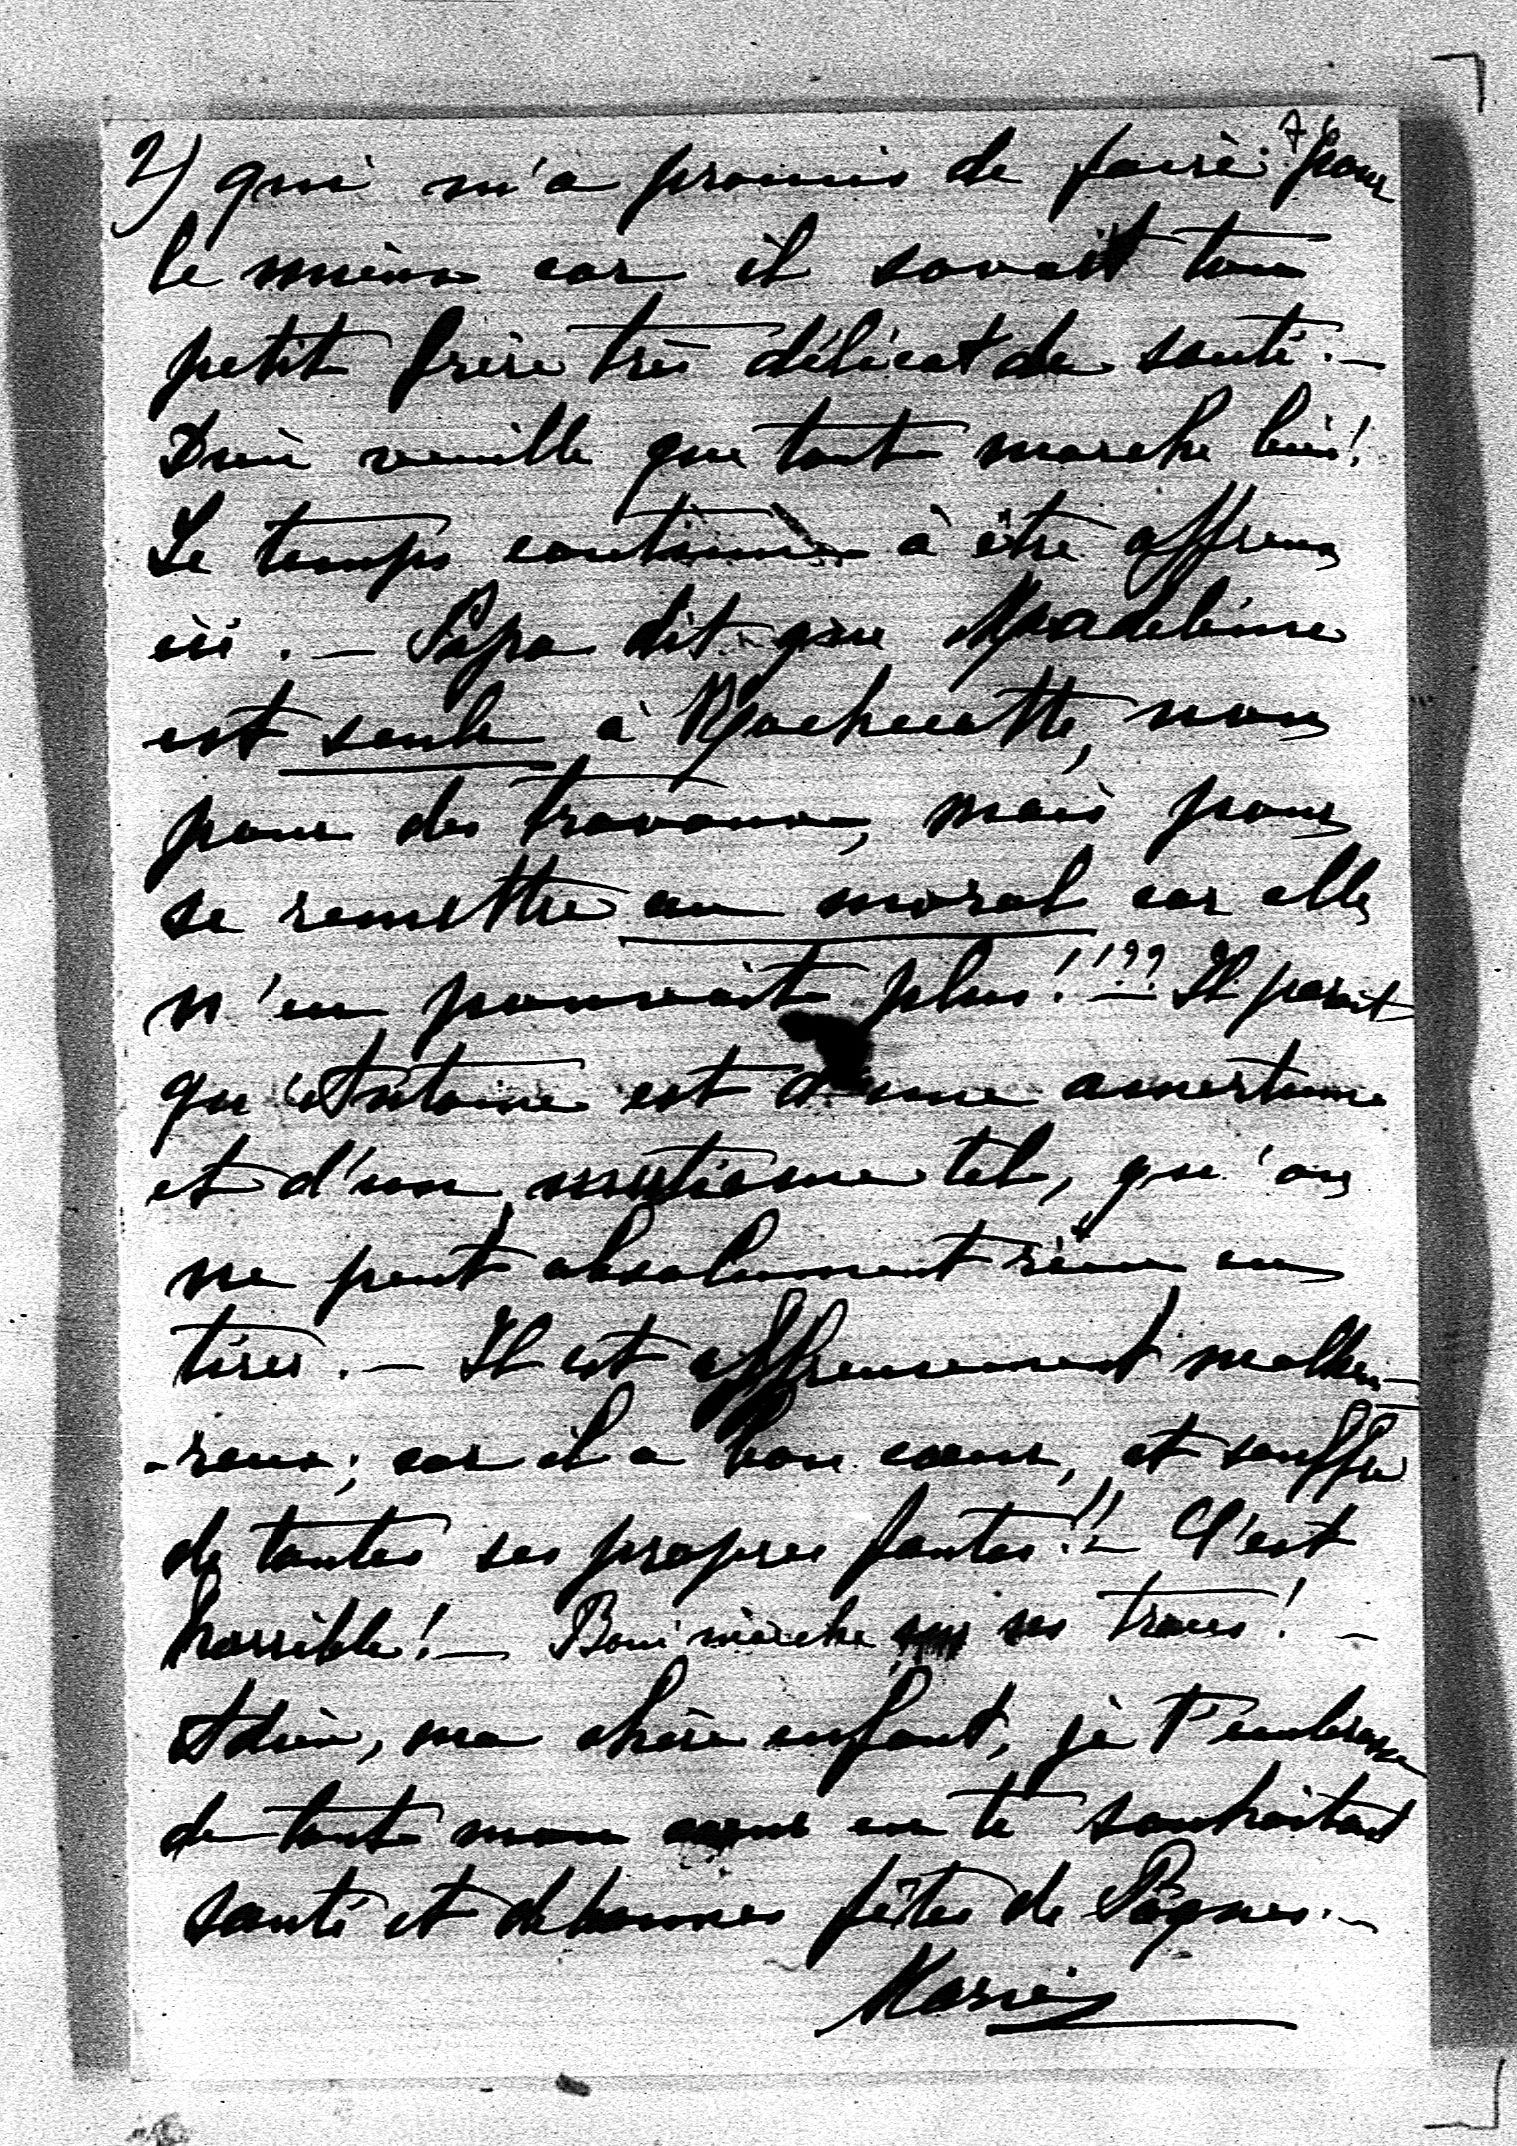 76
2) qui m'a promis de faire pour
le mieux car il savait ton
petit frère très délicat de santé. —
Dieu veuille que tout marche bien!
Le temps continue à être affreux
ici. — Papa dit que Madeleine
est seule à Rochecotte, non
pour des travaux, mais pour
se remettre au moral car elle
n'en pouvait plus!!?? — Il parait
qu'Antoine est d'une amertume
et d'un mutisme tels, qu'on
ne peut absolument rien en
tirer. — Il est affreusement malheu-
-reux; car il a bon cœur, et souffre
de toutes ses propres fautes!! — C'est
horrible! — Boni marche sur ses traces! —
Adieu, ma chère enfant, je t'embrasse
de tout mon cœur en te souhaitant
santé et de bonnes fêtes de Pâques. —
Marie